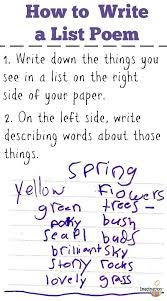 How to Write
a List Poem
1. Write down the things you
see in a list on the right
side of your paper.
2. On the left side, write
describing words about those
things.
Spring
yellow flowers
green trees
bush
small buds
brilliant sky
stony rocks
lovely grass